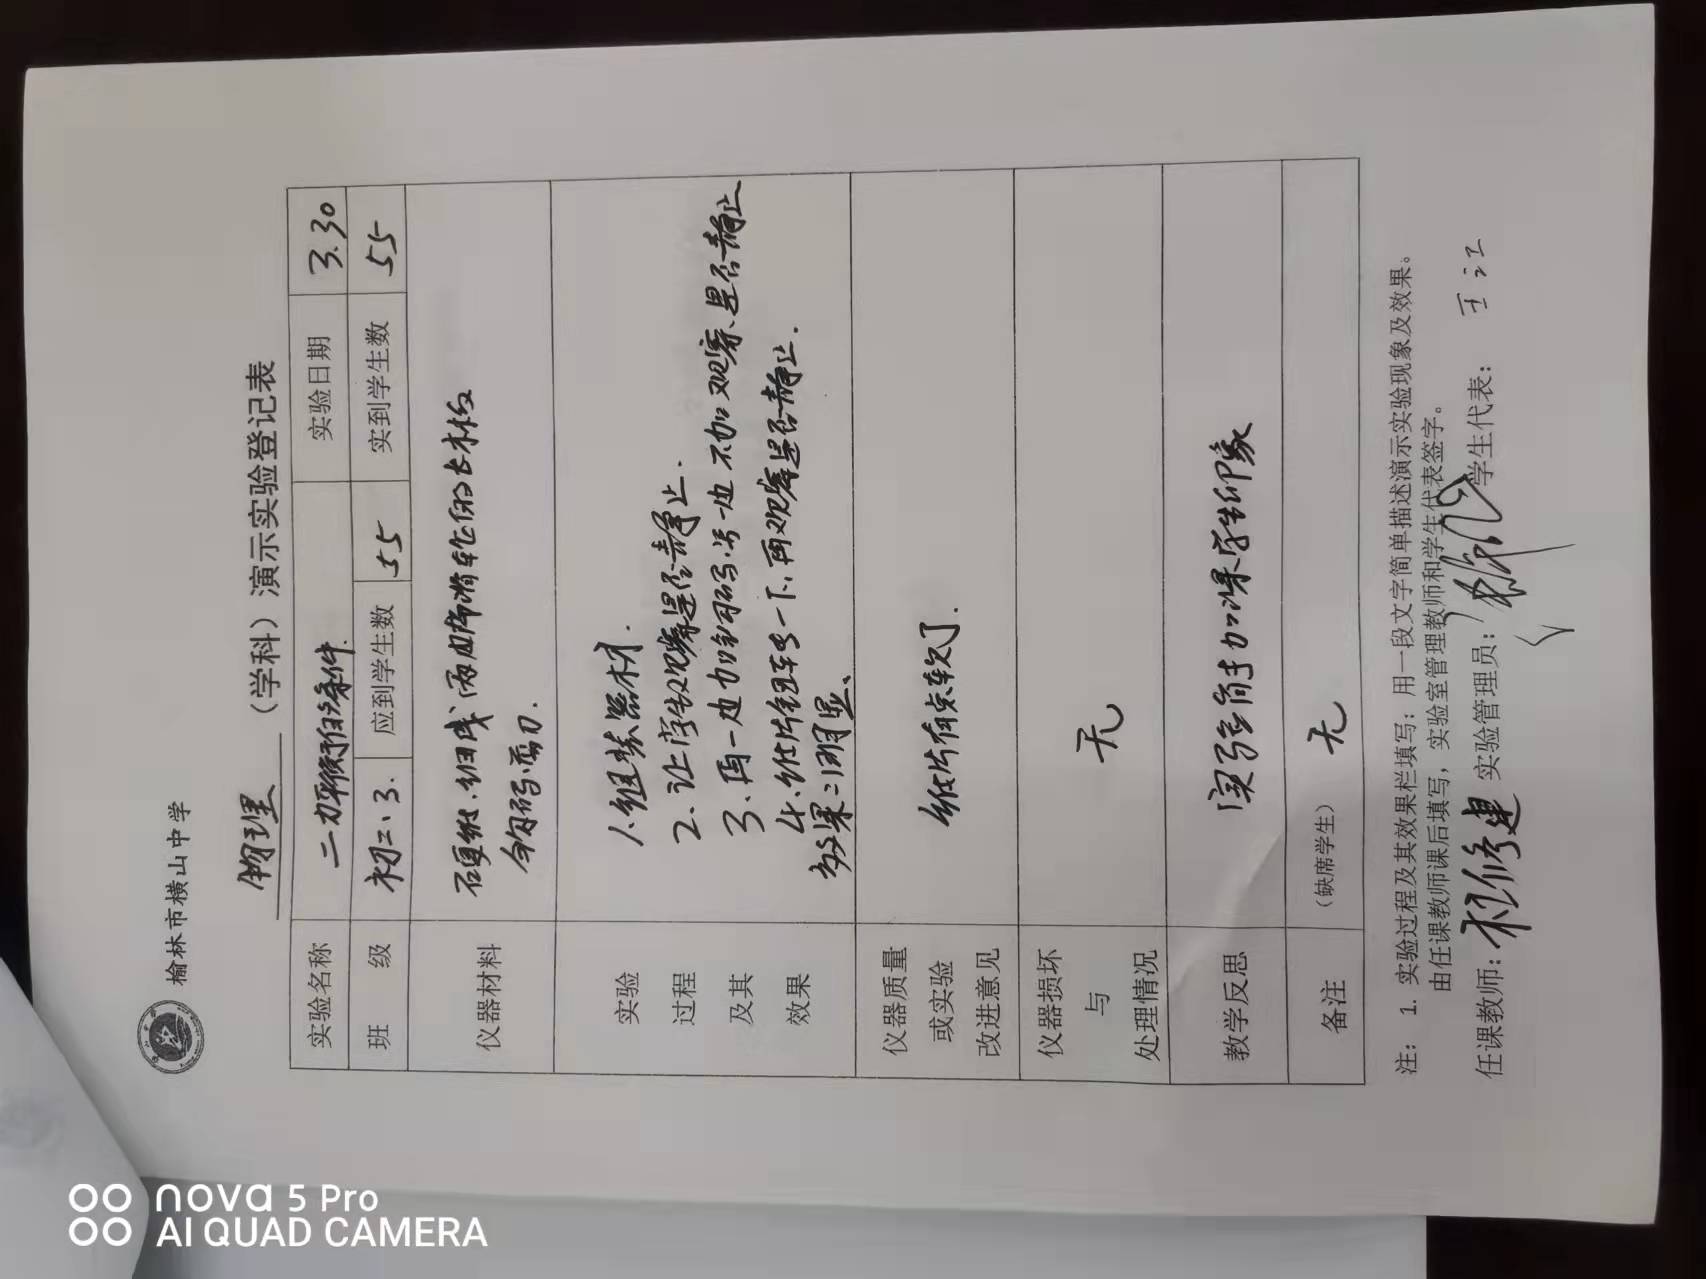 榆林市横山中学
物理（学科）演示实验登记表
实验名称 二力平衡的条件 实验日期 3.30
班级 初二.3. 应到学生数 55 实到学生数 55
仪器材料 硬纸.细线 两端带滑轮的长木板
钩码.剪刀.
实验过程及其效果
1.组装器材.
2.让学生观察是否静止.
3.再一边加钩码.另一边不加观察是否静止
4.纸片扭转一下.再观察是否静止.
效果:明显、
仪器质量或实验改进意见 纸片有点软了.
仪器损坏与处理情况 无
教学反思 实验简单加深学生印象
备注 (缺席学生) 无
注: 1. 实验过程及其效果栏填写: 用一段文字简单描述演示实验现象及效果。
由任课教师课后填写, 实验室管理教师和学生代表签字。
任课教师: 修建 实验管理员: 学生代表: 王江
nova 5 Pro
AI QUAD CAMERA